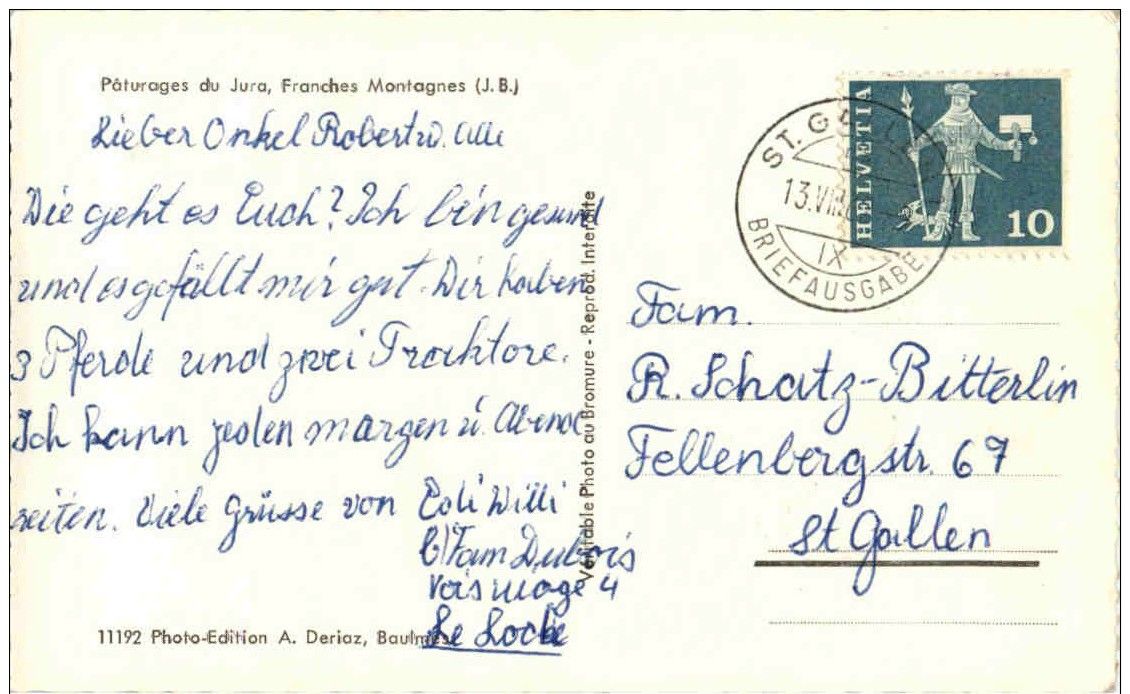 Pâturages du Jura, Franches Montagnes (J.B.)
Lieber Onkel Robert u. alle
Wie geht es Euch? Ich bin gesund
und es gefällt mir gut. Wir haben
3 Pferde und zwei Tracktore.
Ich kann jeden margen u. Abend
reiten. Viele Grüsse von Edi Willi
b/Fam Dubois
Voismage 4
Le Locle
11192 Photo-Edition A. Deriaz, Baulmes
Véritable Photo au Bromure - Reprod. Interdite
ST. GALLEN
13.VIII
IX
BRIEFAUSGABE
HELVETIA
10
Fam.
R. Schatz-Bitterlin
Fellenbergstr. 67
St Gallen